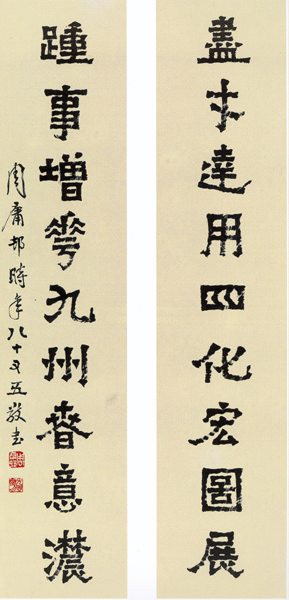 盡才達用四化宏圖展
踵事增華九州春意濃
周庸邨時年八十又五敬書